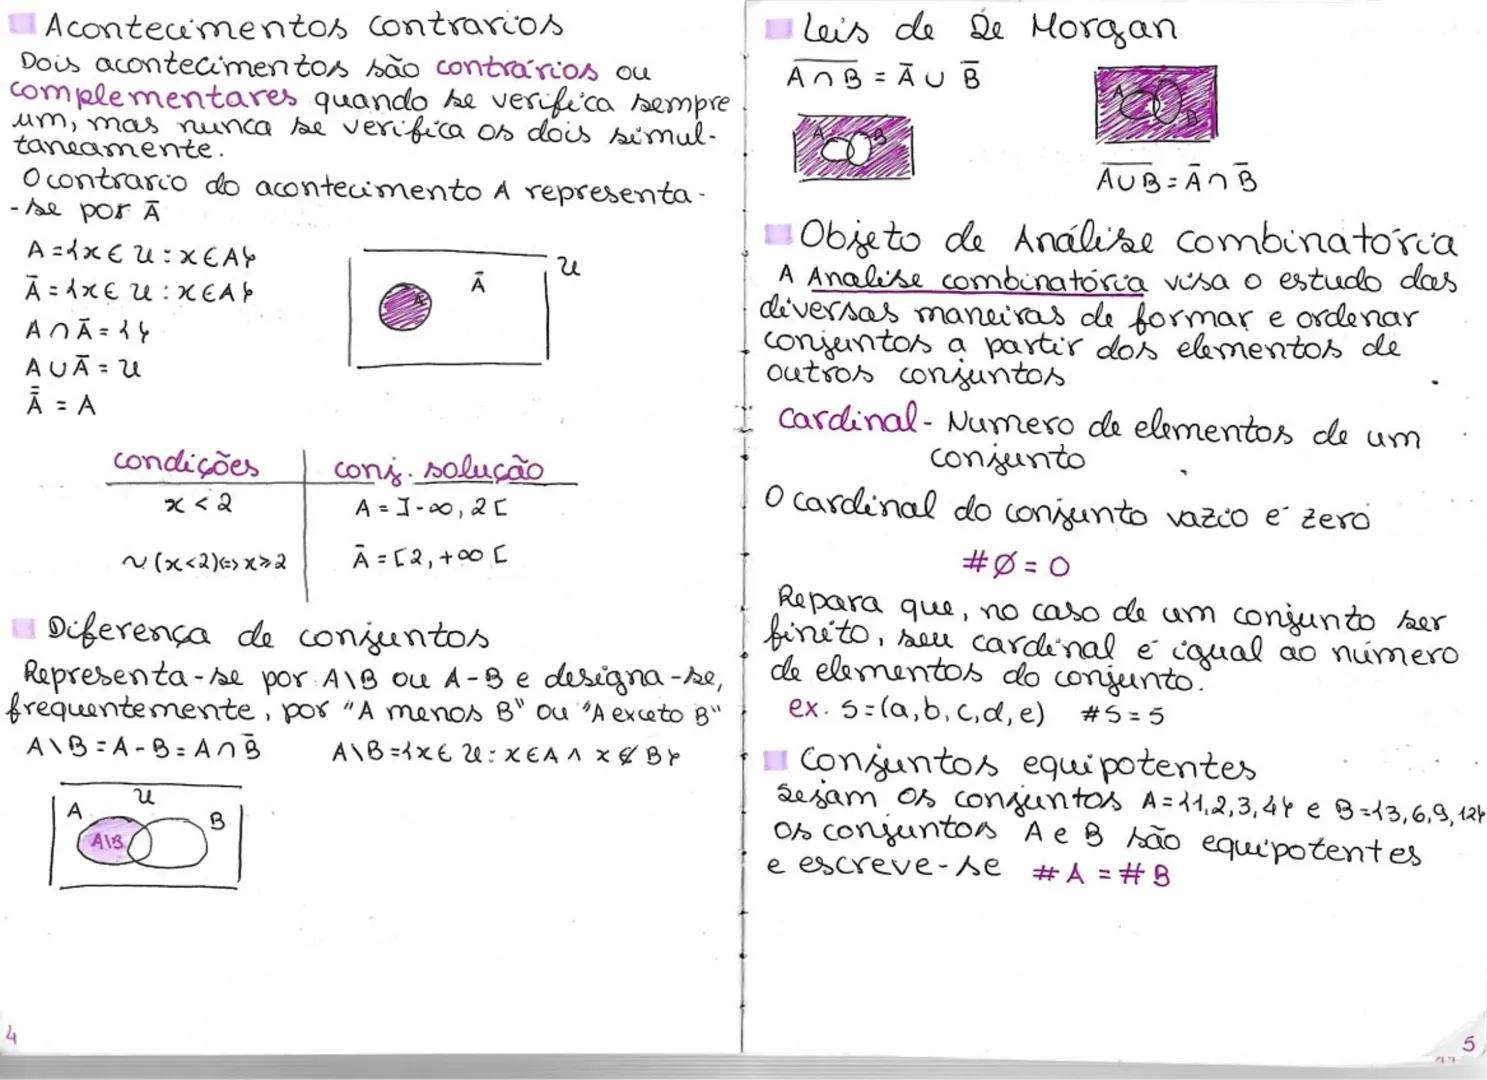 Acontecimentos contrarios
Dois acontecimentos são contrários ou
complementares quando se verifica sempre
um, mas nunca se verifica os dois simul-
taneamente.
O contrario do acontecimento A representa-
-se por Ā
A = {x ∈ U : x ∈ A}
Ā = {x ∈ U : x ∈ A}
A ∩ Ā = { }
A ∪ Ā = U
A̿ = A
U
Ā
A
condições conj. solução
x < 2 A = ]-∞, 2[
~(x<2)⇔x⩾2 Ā = [2, +∞[
Diferença de conjuntos
Representa-se por A\B ou A-B e designa-se,
frequentemente, por "A menos B" ou "A exceto B"
A\B = A-B = A ∩ B̅ A\B = {x ∈ U : x ∈ A ∧ x ∉ B}
U
A B
A\B
4
Leis de De Morgan
A̅∩̅B̅ = Ā ∪ B̅
A B
A B
A̅∪̅B̅ = Ā ∩ B̅
Objeto de Análise combinatória
A Analise combinatória visa o estudo das
diversas maneiras de formar e ordenar
conjuntos a partir dos elementos de
outros conjuntos
Cardinal - Numero de elementos de um
conjunto
O cardinal do conjunto vazio é zero
#∅ = 0
Repara que, no caso de um conjunto ser
finito, seu cardinal é igual ao número
de elementos do conjunto.
ex. S = (a, b, c, d, e) #S = 5
Conjuntos equipotentes
Sejam os conjuntos A = {1, 2, 3, 4} e B = {3, 6, 9, 12}
Os conjuntos A e B são equipotentes
e escreve-se #A = #B
5